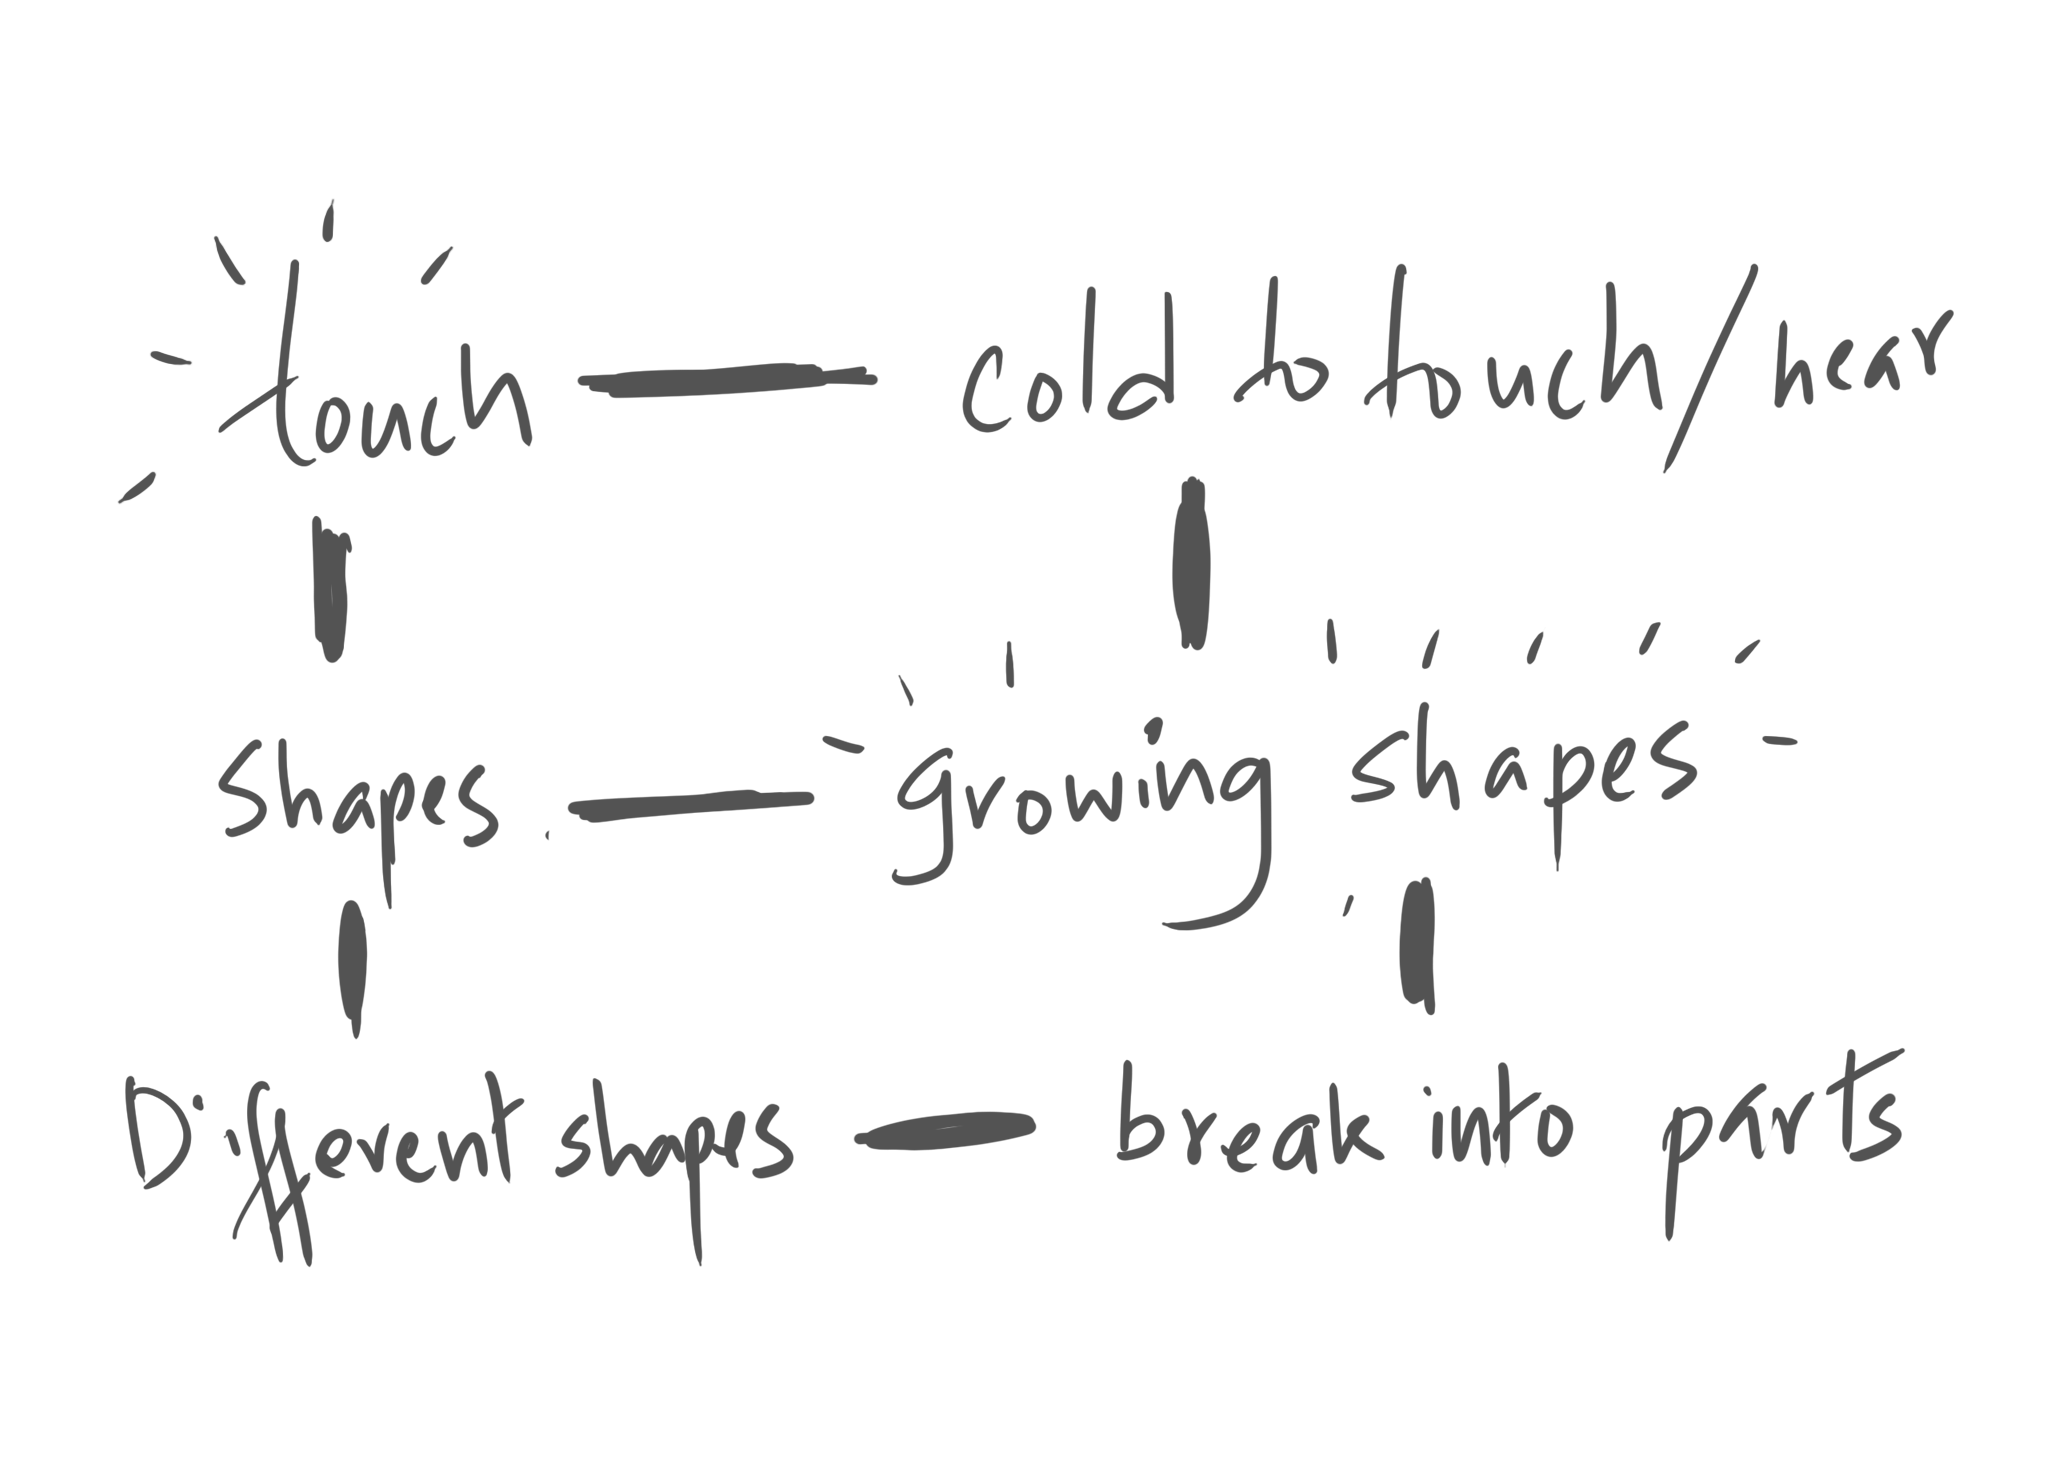 touch — cold to touch/hear
shapes — growing shapes
Different shapes — break into parts